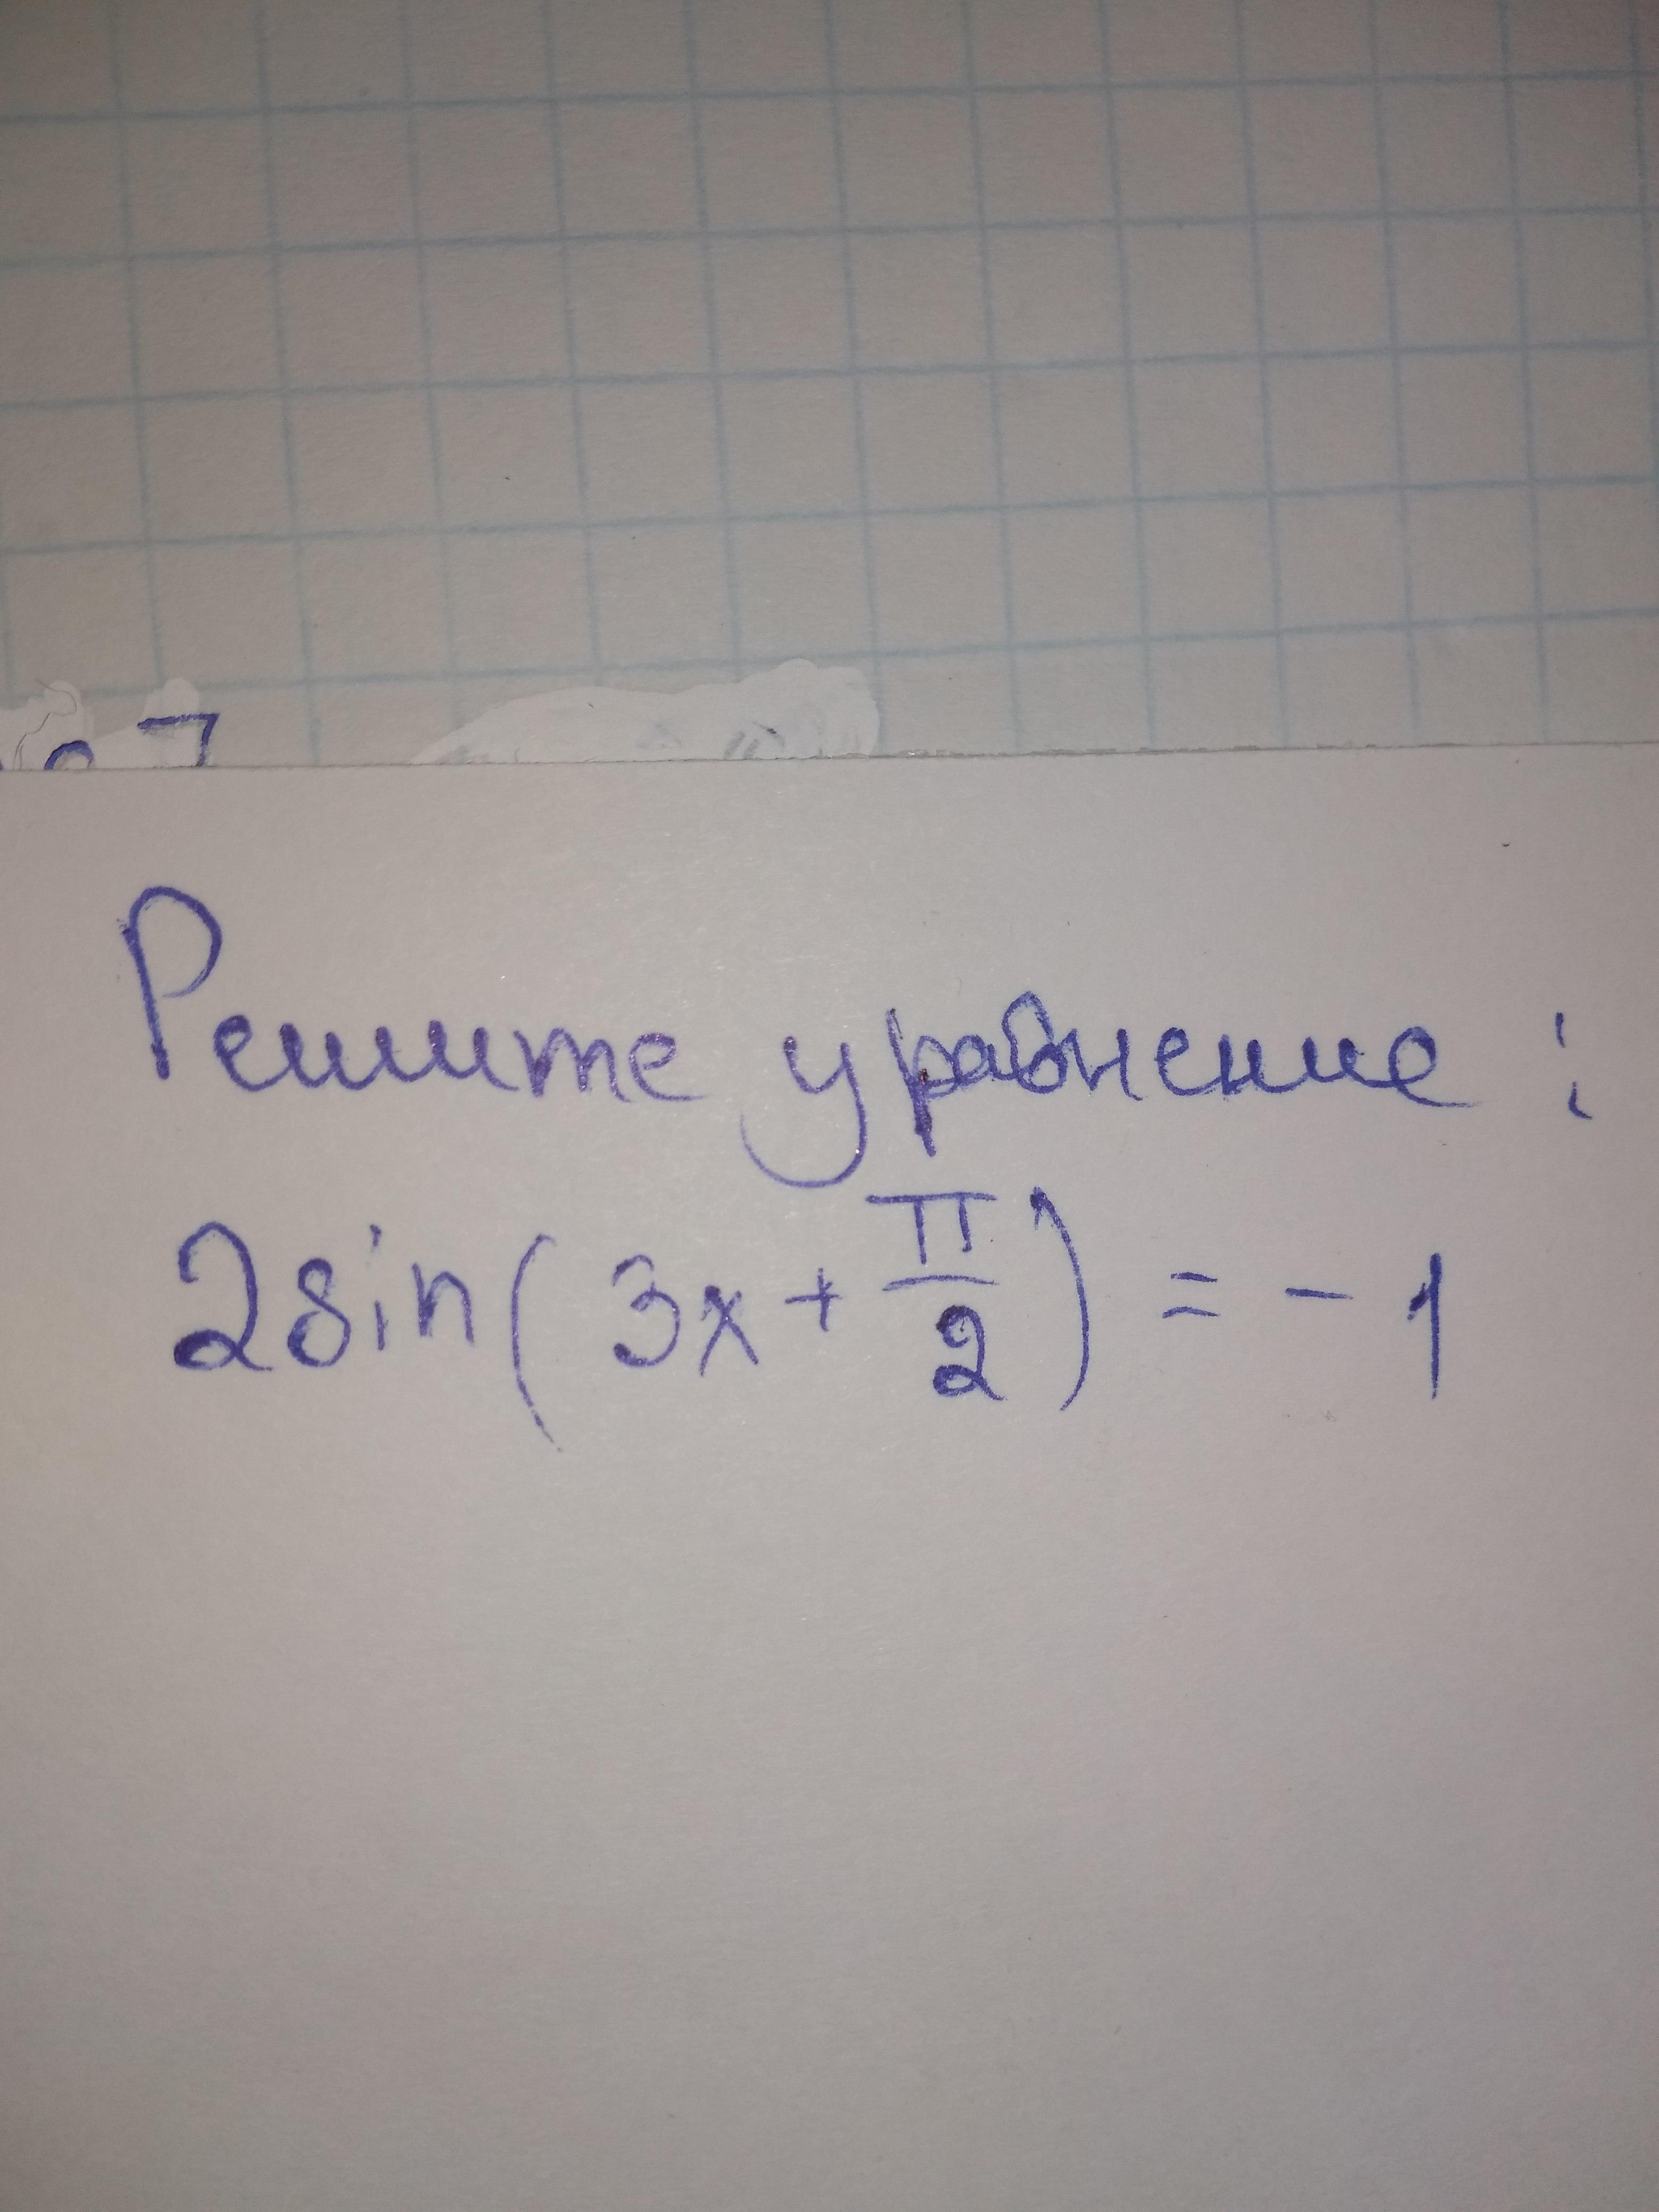 Решите уравнение:
2sin(3x+π/2)=-1